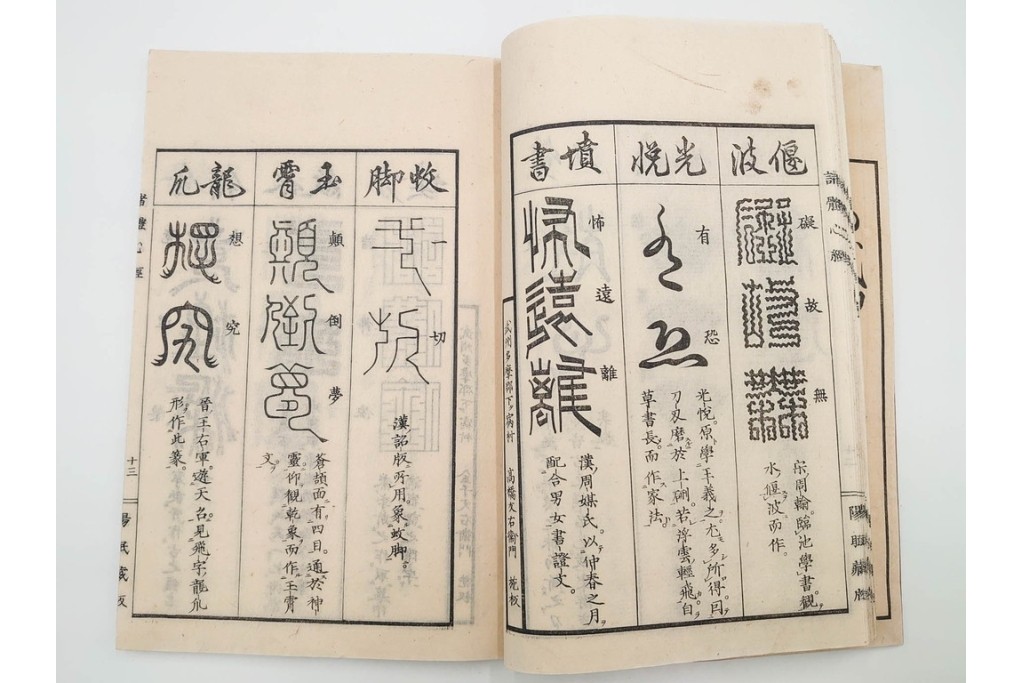 偃波
礙
故
無
宋周輪。臨池學書。觀
水偃波而作。
光悅
有
恐
光悅。原學王羲之。尤多所得。囙
刀刄磨於上硎。若浮雲輕飛。自
草書長。而作家法。
墳書
怖
遠
離
漢。周媒氏。以仲春之月。
配合男女書證文。
高橋文右衛門
蚊脚
一
切
漢詔版所用。象蚊脚。
玉霄
顛
倒
夢
蒼頡面有四目。通於神
靈。仰觀乾象而作玉霄
文。
龍爪
想
究
晉。王右軍。遊天台。見飛字龍爪
形。作此篆。
諸體心經
十三